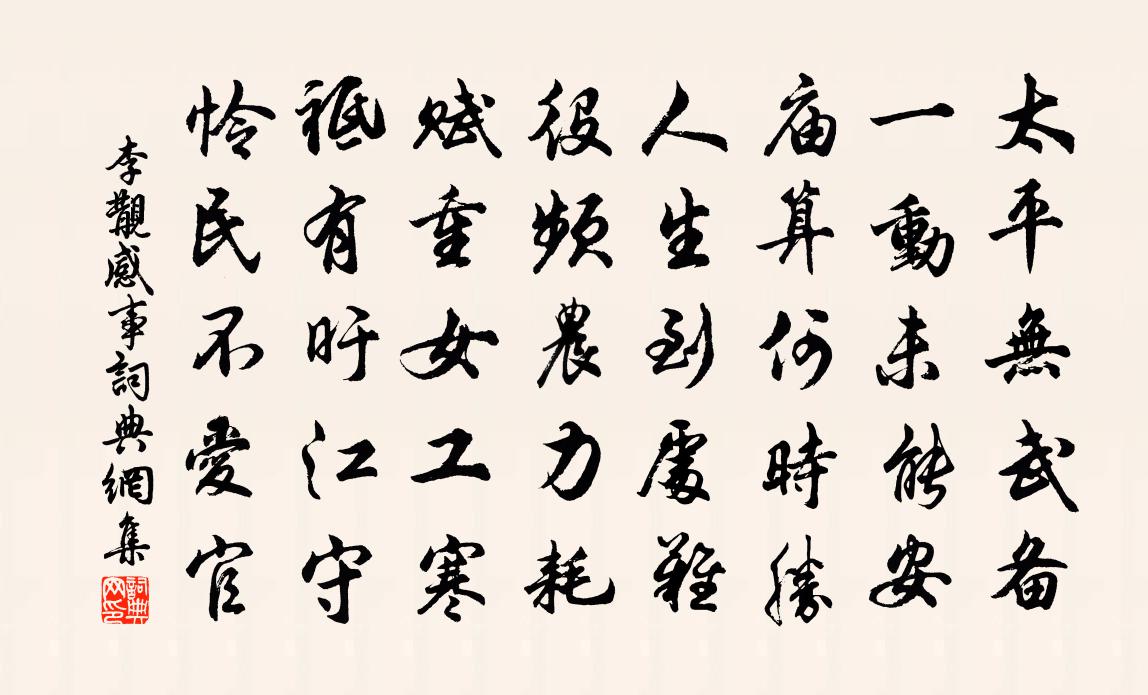 太平無武备
一動未能安
庙算何時勝
人生到處難
役频農力耗
赋重女工寒
祗有旴江守
怜民不愛官
李觀感事詞典網集
詞典
网印